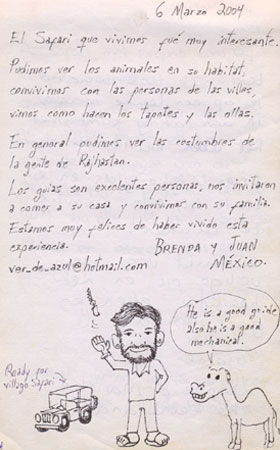 6 Marzo 2004
El Safari que vivimos fué muy interesante.
Pudimos ver los animales en su habitat,
convivimos con las personas de las villas,
vimos como hacen los tapetes y las ollas.
En general pudimos ver las costumbres de
la gente de Rajhastan.
Los guias son excelentes personas, nos invitaron
a comer a su casa y convivimos con su familia.
Estamos muy felices de haber vivido esta
experiencia.
BRENDA Y JUAN
ver_de_azul@hotmail.com
MÉXICO.
He is a good guide
also he is a good
mechanical.
Ready for
village Safari